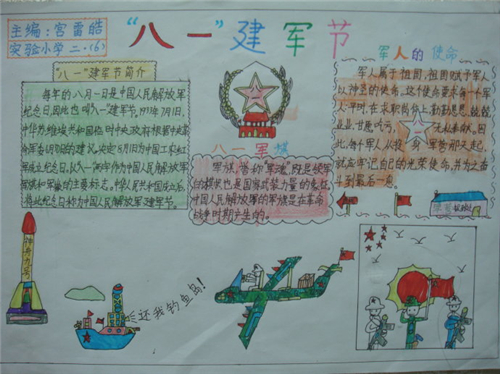 主编:宫雷皓
实验小学二.(6)
“八一”建军节
“八一”建军节简介
每年的八月一日是中国人民解放军
纪念日,因此也叫“八一”建军节。1933年7月1日,
中华苏维埃共和国临时中央政府根据中央革
命军委6月30日的建议,决定8月1日为中国工农红
军成立纪念日。
将此纪念日称为中国人民解放军建军节。
八一军旗
军旗,誉称“军魂”,既是锐军
的标状也是国家武装力量的象征
中国人民解放军的军旗是在革命
战争时期产生的。
军人的使命
军人属于祖国,祖国赋予军人
以神圣的使命,这个使命要求每一个军
人平时,在本职岗位上勤勤恳恳,兢兢
业业,甘愿吃苦,无私奉献。因
此,每个军人从投身军营那天起,
就应牢记自己的光荣使命,并为之奋
斗到最后一息。
神舟九号
还我钓鱼岛!